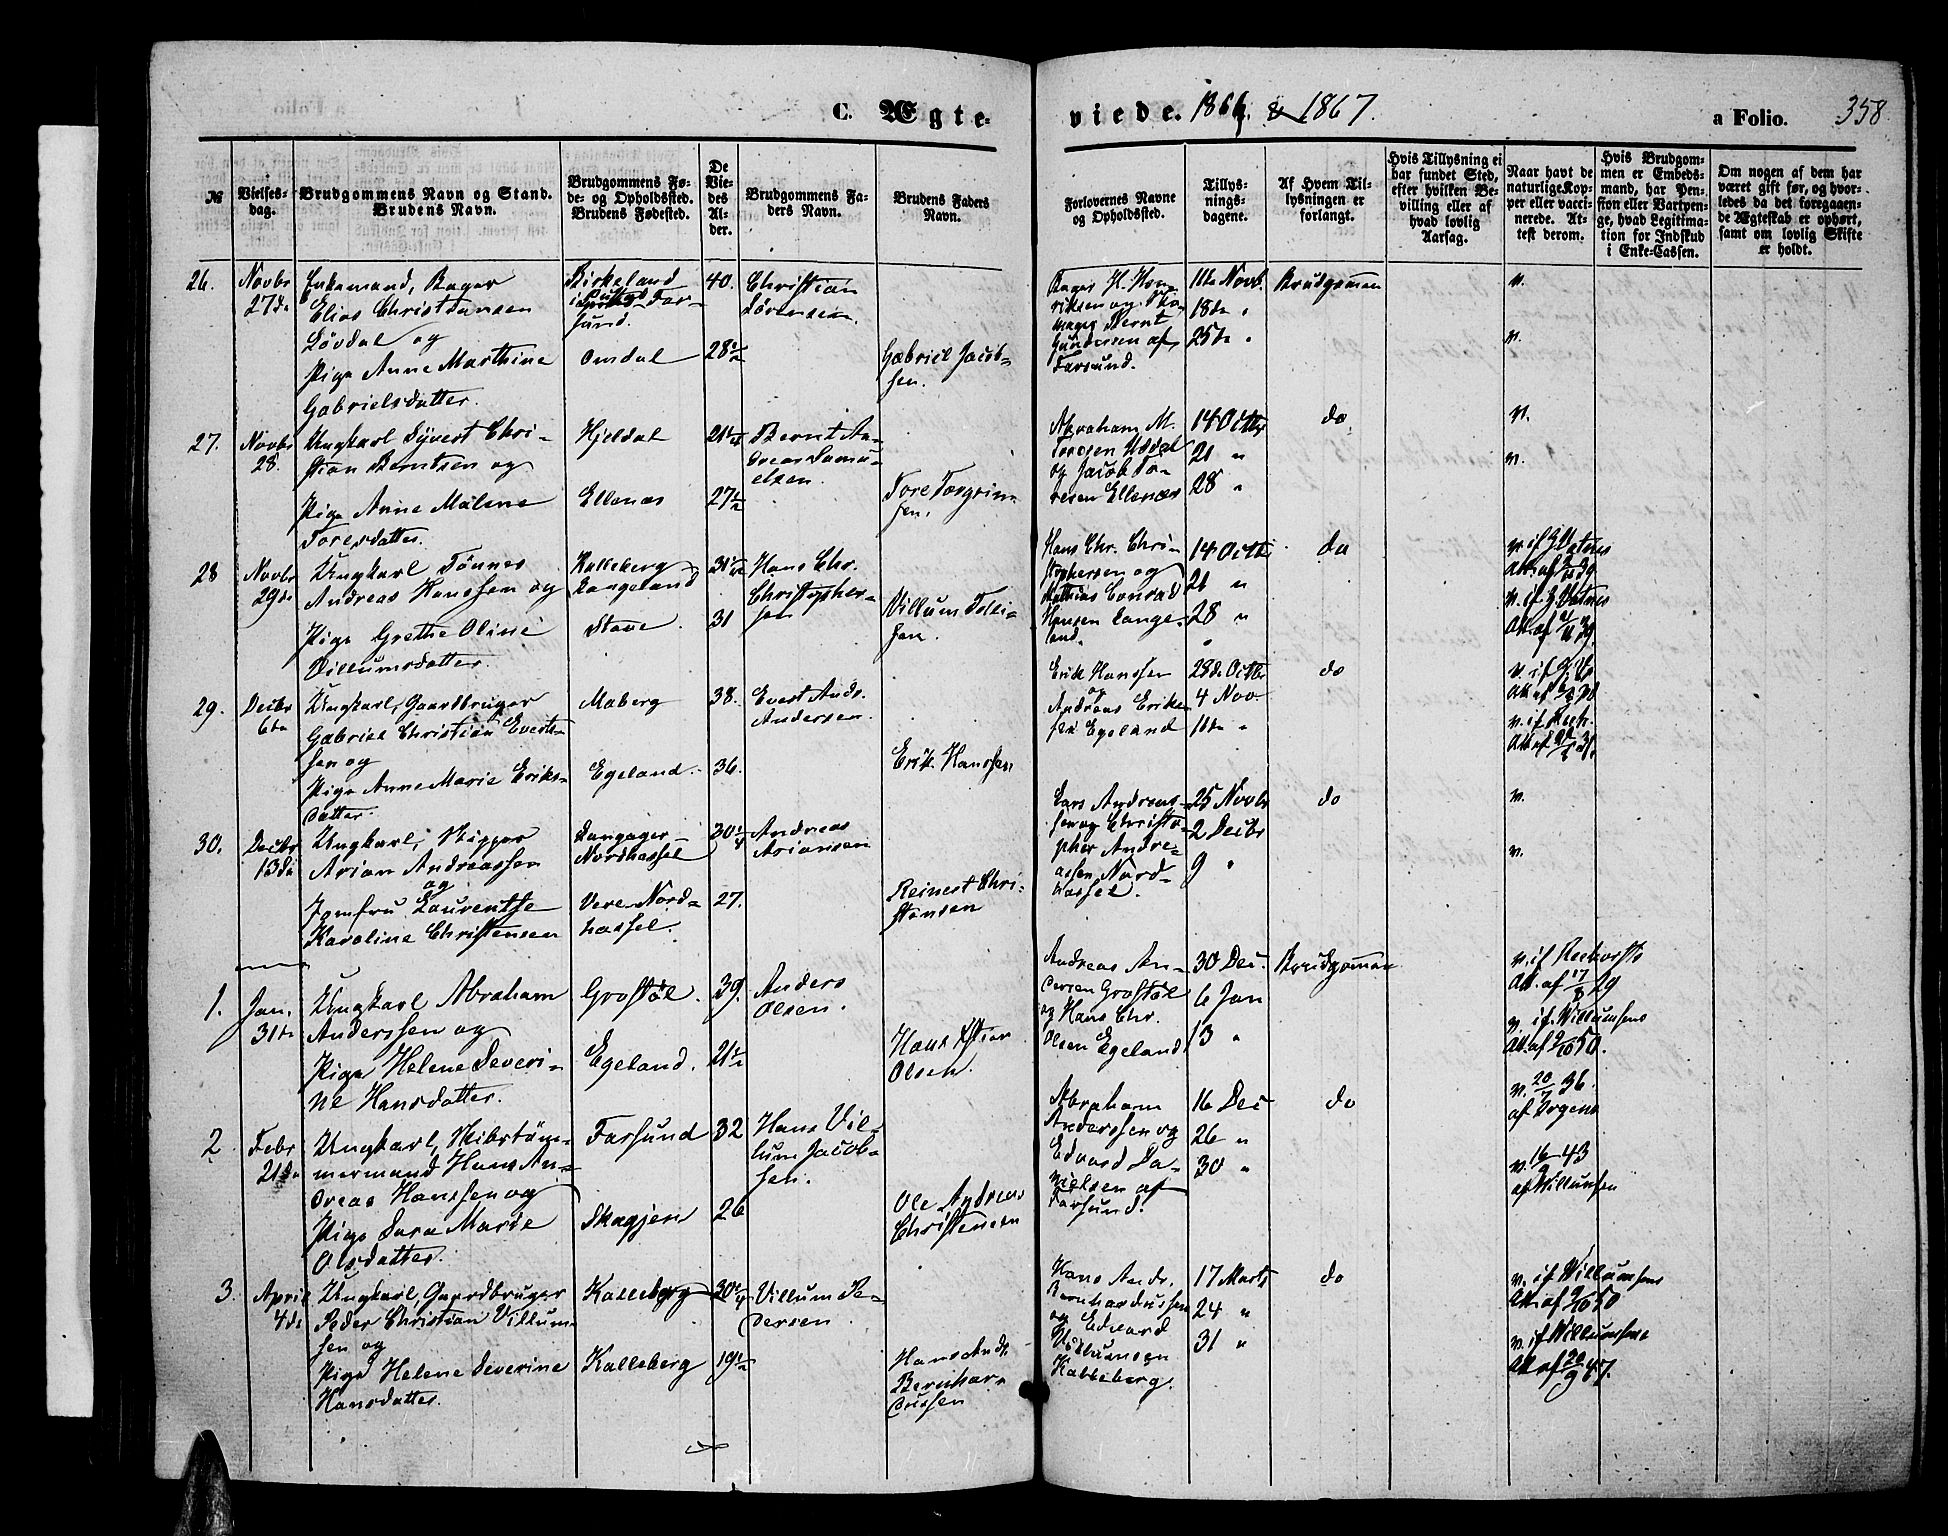 C. Ægte-
viede. 1866 & 1867.
a Folio. 358
№
Vielses-
dag.
Brudgommens Navn og Stand.
Brudens Navn.
Brudgommens Fø-
de- og Opholdssted.
Brudens Fødested.
De
Vie-
des
Al-
der.
Brudgommens Fa-
ders Navn.
Brudens Faders
Navn.
Forlovernes Navne
og Opholdssted.
Tillys-
nings-
dagene.
Af Hvem Til-
lysningen er
forlangt.
Hvis Tillysning ei
har fundet Sted,
efter hvilken Be-
villing eller af
hvad lovlig
Aarsag.
Naar havt de
naturlige Kop-
per eller vacci-
nerede. At-
test derom.
Hvis Brudgom-
men er Embeds-
mand, har Pen-
sion eller Vartpen-
ge, hvad Legitima-
tion for Indskud
i Enke-Cassen.
Om nogen af dem har
været gift før, og hvor-
ledes da det foregaaen-
de Ægteskab er ophørt,
samt om lovlig Skifte
er holdt.
26.
Novbr
27de
Enkemand, Bager
Elias Christiansen
Løvdal og
Pige Anne Marthine
Gabrielsdatter.
Birkeland
Far-
sund.
Omdal
40.
28½
Christian
Sørensen.
Gabriel Jacob-
sen.
Bager H. Hen-
riksen og Sko-
mager Bernt
Gundersen af
Farsund.
11te Novb.
18de "
25de "
Brudgommen
v.
v.
27.
Novbr
28.
Ungkarl Syvert Chri-
stian Berntsen og
Pige Anne Malene
Toresdatter.
Hjeldal
Ellenæs
27½
Bernt An-
dreas Samu-
elsen.
Tore Torgrim-
sen.
Abraham M.
Toresen
og Jacob To-
resen Ellenæs
14 Octbr
21 "
28 "
do
v.
v.
28
Novbr
29de
Ungkarl Tønnes
Andreas Hanssen og
Pige Grethe Oline
Villumsdatter.
Kalleberg
Langeland
Stave.
31
Hans Chr.
Christopher-
sen
Villum Tolli-
sen.
Hans Chr. Chri-
stophersen og
Mathias Conrad
Hansen Lange-
land.
14 Octb
21 "
28 "
do
29.
Decbr
6te
Ungkarl, Gaardbruger
Gabriel Christian Everts-
sen og
Pige Anne Marie Eriks-
datter.
Maberg
Egeland.
38.
36.
Evert Ands.
Andersen.
Erik Hanssen
Erik Hanssen
og
Andreas Erik-
sen Egeland
28de Octbr
4 Nov.
11te "
do
30.
Decbr
13de
Ungkarl, Skipper
Arian Andreassen
og
Jomfru Laurentse
Karoline Christensen
Langager
Nordhassel
Vere Nord-
hassel.
30¼
27.
Andreas
Ariansen
Reinert Chri-
stensen
Lars Andreas-
sen og Christo-
pher Andre-
assen Nord-
hassel.
25 Novbr
2 Decbr
9 "
do
v.
v.
1.
Jan.
31te
Ungkarl Abraham
Anderssen og
Pige Helene Severi-
ne Hansdatter.
Grostøl.
Egeland.
39.
21½
Anders
Olsen.
Hans Chr
Olsen.
Andreas An-
dersen Grostøl
og Hans Chr.
Olsen Egeland
30 Dec.
6 Jan
13 "
Brudgommen
Att. af 17/8 29
v. if. Willumsens
Att. af 2/10 50.
2
Febr
21de
Ungkarl, Skibstøm-
mermand Hans An-
dreas Hanssen og
Pige Sara Marie
Olsdatter.
Farsund
Skagjem
32
26
Hans Vil-
lum Jacob-
sen.
Ole Andreas
Christensen
Abraham
Anderssen og
Edvard Da-
nielsen af
Farsund.
16 Dec
26 "
30 "
do
v. 20/7 36.
v. 16/9 43
af Willumsen
3.
April
4de
Ungkarl, Gaardbruger
Peder Christian Villum-
sen og
Pige Helene Severine
Hansdatter.
Kalleberg
Kalleberg
30¼
19½
Villum Pe-
dersen.
Hans Andr.
Bernhar-
dussen
Hans Andr.
Bernhardussen
og Edvard
Villumsen
Kalleberg.
17 Marts
24 "
31 "
do
v. if. Willumsens
Att. af 2/10 50
v. if. Willumsens
Att. af 20/9 47.